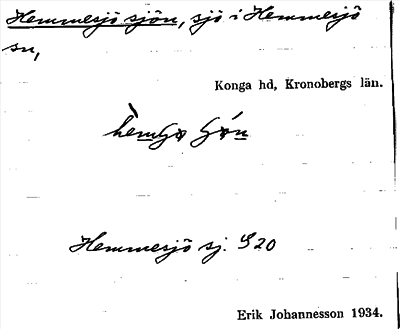 Hemmesjö sjön, sjö i Hemmesjö
sn,
Konga hd, Kronobergs län.
Hemmesjö sj. S 20
Erik Johannesson 1934.